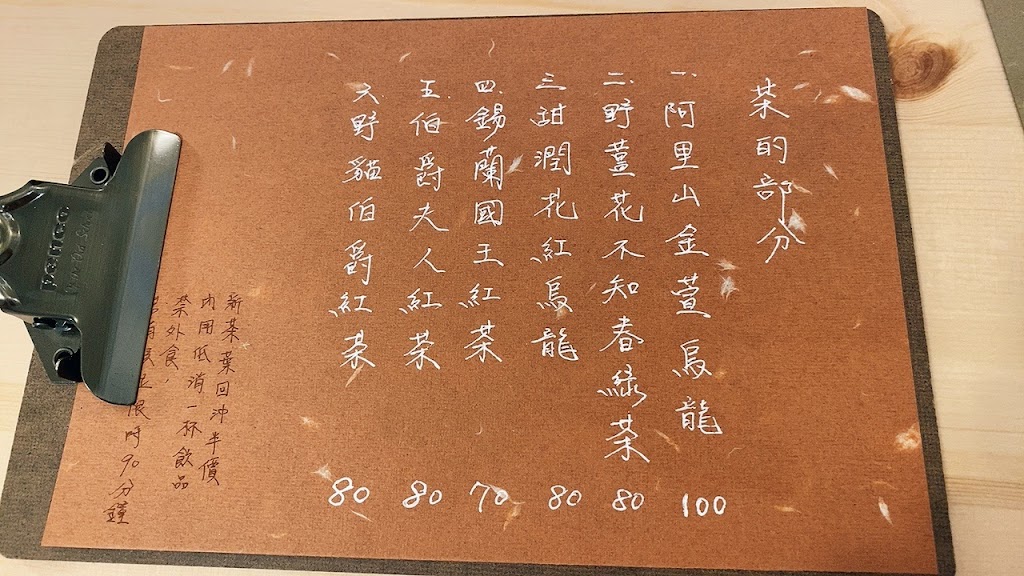 茶的部分
一.阿里山金萱烏龍 100
二.野薑花不知春綠茶 80
三.甜潤花紅烏龍 80
四.錫蘭國王紅茶 70
五.伯爵夫人紅茶 80
六.野貓伯爵紅茶 80
新茶葉回沖半價
內用低消一杯飲品
禁外食,
限時90分鐘